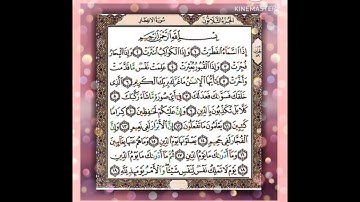 KINEMASTER
الجزء الثلاثون سورة الانفطار
بِسْمِ اللَّهِ الرَّحْمَٰنِ الرَّحِيمِ
إِذَا السَّمَاءُ انفَطَرَتْ ١ وَإِذَا الْكَوَاكِبُ انتَثَرَتْ ٢ وَإِذَا الْبِحَارُ
فُجِّرَتْ ٣ وَإِذَا الْقُبُورُ بُعْثِرَتْ ٤ عَلِمَتْ نَفْسٌ مَّا قَدَّمَتْ
وَأَخَّرَتْ ٥ يَٰأَيُّهَا الْإِنسَٰنُ مَا غَرَّكَ بِرَبِّكَ الْكَرِيمِ ٦ الَّذِي
خَلَقَكَ فَسَوَّىٰكَ فَعَدَلَكَ ٧ فِي أَيِّ صُورَةٍ مَّا شَاءَ رَكَّبَكَ ٨
كَلَّا بَلْ تُكَذِّبُونَ بِالدِّينِ ٩ وَإِنَّ عَلَيْكُمْ لَحَٰفِظِينَ ١٠ كِرَامًا
كَٰتِبِينَ ١١ يَعْلَمُونَ مَا تَفْعَلُونَ ١٢ إِنَّ الْأَبْرَارَ لَفِي نَعِيمٍ ١٣
وَإِنَّ الْفُجَّارَ لَفِي جَحِيمٍ ١٤ يَصْلَوْنَهَا يَوْمَ الدِّينِ ١٥ وَمَا هُمْ عَنْهَا بِغَائِبِينَ
١٦ وَمَا أَدْرَىٰكَ مَا يَوْمُ الدِّينِ ١٧ ثُمَّ مَا أَدْرَىٰكَ مَا يَوْمُ الدِّينِ
١٨ يَوْمَ لَا تَمْلِكُ نَفْسٌ لِّنَفْسٍ شَيْئًا وَالْأَمْرُ يَوْمَئِذٍ لِّلَّهِ ١٩